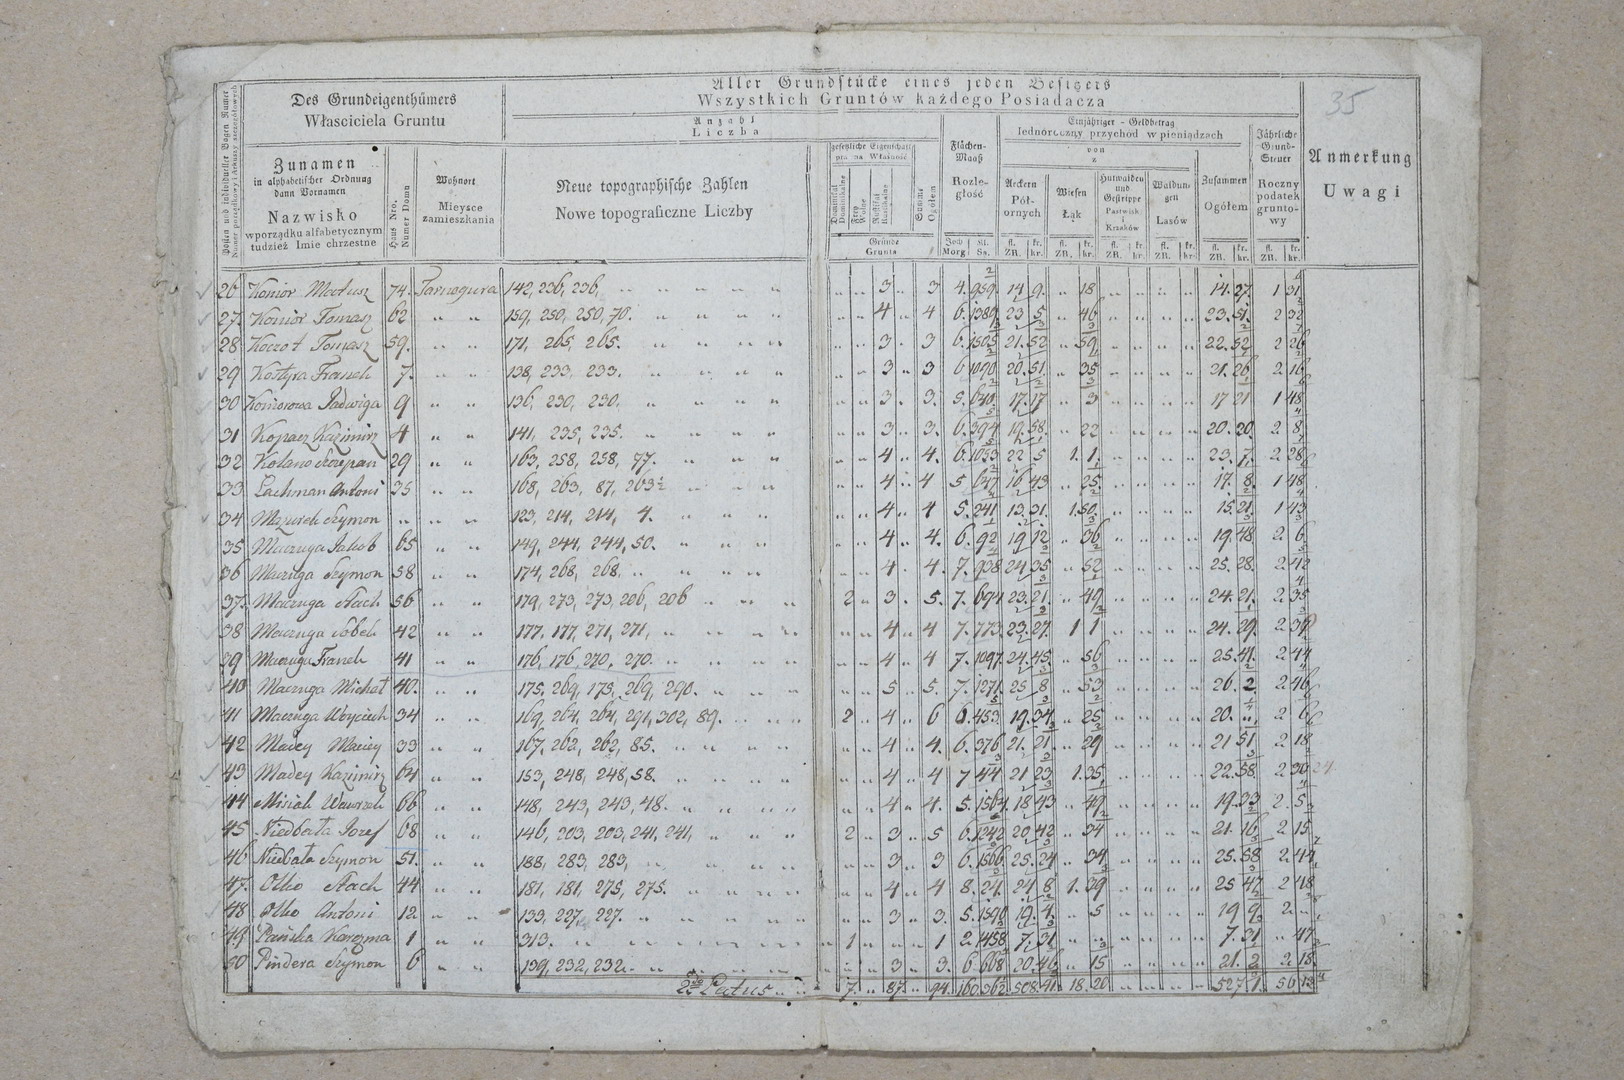 35
Aller Grundstücke eines jeden Besitzers
Wszystkich Gruntów każdego Posiadacza
Des Grundeigenthümers
Własciciela Gruntu
Anzahl
Liczba
Einjähriger - Geldbetrag
Iednoroczny przychod w pieniądzach
von
z
Zunamen
in alphabetischer Ordnung
dann Vornamen
Nazwisko
w porządku alfabetycznym
tudzież Imie chrzestne
Haus Nro.
Numer Domu
Wohnort
Mieysce
zamieszkania
Neue topographische Zahlen
Nowe topograficzne Liczby
Flächen-
Maaß
Rozle-
głość
Aeckern
Pól-
ornych
Wiesen
Łąk
Hutweiden
und
Gestrippe
Pastwisk
i
Krzaków
Waldun-
gen
Lasów
Zusammen
Ogółem
Jährliche
Grund-
Steuer
Roczny
podatek
grunto-
wy
Anmerkung
Uwagi
Gründe
Grunta
26 Konior Mateusz 74. Tarnogura 142, 236, 236, 3 3 4. 959 14 9. 18 14. 27 1 31
27. Konior Tomasz 62 159, 250, 250, 70. 4 4 6. 1389 23 5 46 23. 51 2 32
28 Koczot Tomasz 59. 171, 265, 265. 3 3 6. 1505 21. 52 59 22. 52 2 26
29 Kostyra Franek 7. 138, 233, 233. 3 3 6 1090 20. 51 35 21. 26 2 16
30 Komorowa Jadwiga 9 136, 230, 230. 3 3. 5. 640 17. 17 3 17 21 1 48
31 Kopacz Kazimirz 4 141, 235, 235. 3 3. 6. 394 19. 58 22 20. 20 2 8
32 Kolano Szczepan 29 163, 258, 258, 77. 4 4. 6. 1053 22 5 1. 1 23. 7 2 28
33 Lachman Antoni 35 168, 263, 87, 263½ 4 4 5 647 16 43 25 17. 8 1 48
34 Mazurek Szymon 123, 214, 214, 4. 4 4 5. 241 13. 31 1. 50 15. 21 1 43
35 Maczuga Jakob 65 149, 244, 244, 50. 4 4. 6. 92 19 12 36 19. 48 2. 6
36 Maczuga Szymon 58 174, 268, 268. 4 4. 7. 938 24 35 52 25. 28 2. 42
37. Maczuga Stach 56 179, 273, 273, 206, 206 2 3 5. 7. 694 23. 21 49 24. 21 2. 35
38 Maczuga Sobek 42 177, 177, 271, 271, 4 4 7. 773 23. 27 1 1 24. 29 2. 37
39 Maczuga Franek 41 176, 176, 270, 270. 4 4 7. 1097 24. 45 56 25. 41 2 44
40 Maczuga Michał 40. 175, 269, 175, 269, 290. 5 5. 7. 1271 25 8 53 26. 2 2. 46
41 Maczuga Woyciech 34 169, 264, 264, 291, 302, 89. 2 4 6 6. 453 19. 34 25 20. 2 6
42 Madey Maciey 33 167, 262, 262, 85. 4 4. 6. 376 21. 21 29 21 51 2 18
43 Madey Kazimirz 64 153, 248, 248, 58. 4 4 7 44 21 23 1. 35 22. 58 2 30
44 Misiak Wawrzek 66 148, 243, 243, 48. 4 4. 5. 1564 18 43 49 19. 33 2. 5
45 Niedbała Jozef 68 146, 203, 203, 241, 241, 2 3 5 6. 1242 20 42 34 21. 16 2 15
46 Niedbała Szymon 51. 188, 283, 283, 3 3 6. 1506 25. 24 34 25. 58 2. 44
47. Olko Stach 44 181, 181, 275, 275. 4 4 8. 24 24 8 1. 39 25 47 2 48
48 Olko Antoni 12 133, 227, 227. 3 3. 5. 1590 19. 4 5 19 9 2
49 Pańska Karczma 1 313. 1 1 2. 1458 7. 31 7. 31 47
50 Pindera Szymon 6 139, 232, 232. 3 3. 6 668 20. 46 15 21. 2 2 18
Latus 7. 87 94. 160. 262 508. 41 18. 20 527. 1 56 13